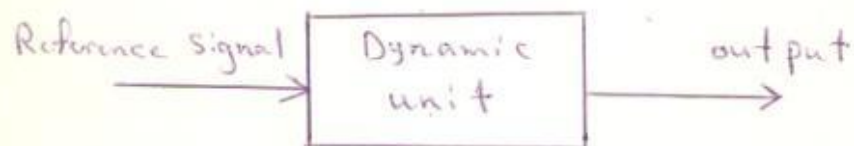 Reference Signal
Dynamic
unit
output